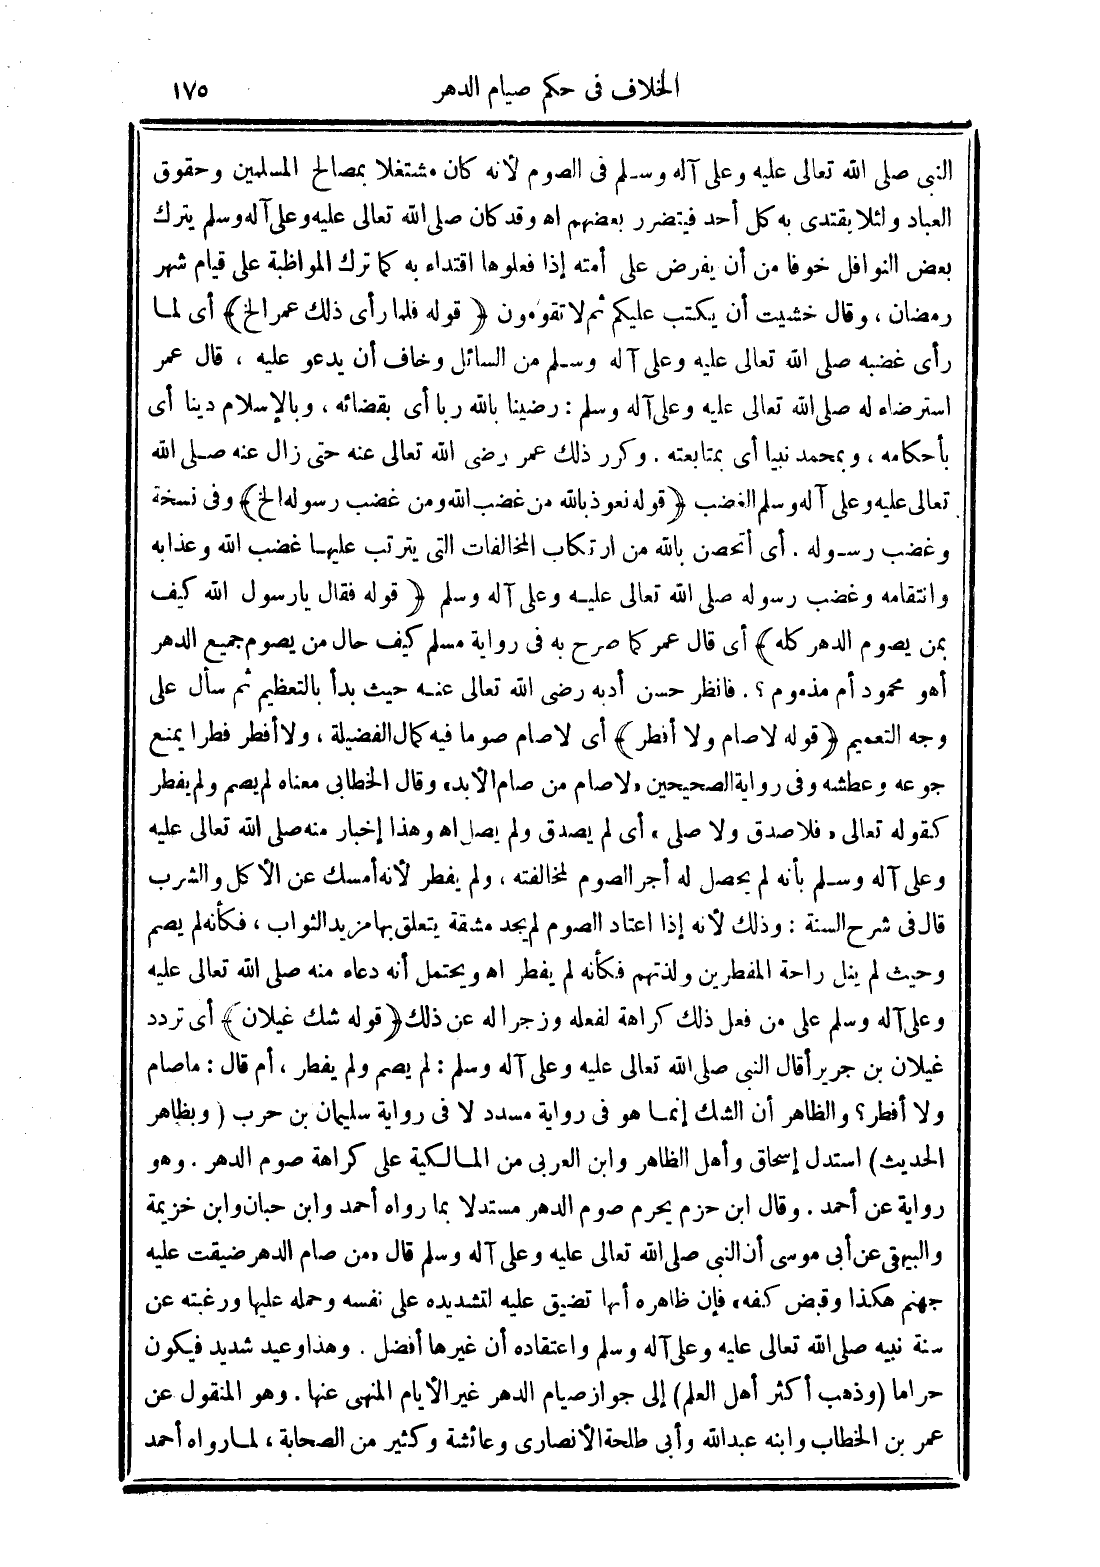 الخلاف فى حكم صيام الدهر ١٧٥
النبى صلى الله تعالى عليه وعلى آله وسلم فى الصوم لأنه كان مشتغلا بمصالح المسلمين وحقوق
العباد ولئلا يقتدى به كل أحد فيتضرر بعضهم اه وقد كان صلى الله تعالى عليه وعلى آله وسلم يترك
بعض النوافل خوفا من أن يفرض على أمته إذا فعلوها اقتداء به كما ترك المواظبة على قيام شهر
رمضان ، وقال خشيت أن يكتب عليكم ثم لا تقومون ﴿ قوله فلما رأى ذلك عمر الخ ﴾ أى لما
رأى غضبه صلى الله تعالى عليه وعلى آله وسلم من السائل وخاف أن يدعو عليه ، قال عمر
استرضاء له صلى الله تعالى عليه وعلى آله وسلم : رضينا بالله ربا أى بقضائه ، وبالإسلام دينا أى
بأحكامه ، وبمحمد نبيا أى بمتابعته . وكرر ذلك عمر رضى الله تعالى عنه حتى زال عنه صلى الله
تعالى عليه وعلى آله وسلم الغضب ﴿ قوله نعوذ بالله من غضب الله ومن غضب رسوله الخ ﴾ وفى نسخة
وغضب رسوله . أى أتحصن بالله من ارتكاب المخالفات التى يترتب عليها غضب الله وعذابه
وانتقامه وغضب رسوله صلى الله تعالى عليه وعلى آله وسلم ﴿ قوله فقال يارسول الله كيف
بمن يصوم الدهر كله ﴾ أى قال عمر كما صرح به فى رواية مسلم كيف حال من يصوم جميع الدهر
أهو محمود أم مذموم ؟ . فانظر حسن أدبه رضى الله تعالى عنه حيث بدأ بالتعظيم ثم سأل على
وجه التعميم ﴿ قوله لاصام ولا أفطر ﴾ أى لاصام صوما فيه كمال الفضيلة ، ولا أفطر فطرا يمنع
جوعه وعطشه وفى رواية الصحيحين «لاصام من صام الأبد» وقال الخطابى معناه لم يصم ولم يفطر
كقوله تعالى «فلا صدق ولا صلى» أى لم يصدق ولم يصل اه وهذا إخبار منه صلى الله تعالى عليه
وعلى آله وسلم بأنه لم يحصل له أجر الصوم لمخالفته ، ولم يفطر لأنه أمسك عن الأكل والشرب
قال فى شرح السنة : وذلك لأنه إذا اعتاد الصوم لم يجد مشقة يتعلق بها مزيد الثواب ، فكأنه لم يصم
وحيث لم ينل راحة المفطرين ولذتهم فكأنه لم يفطر اه ويحتمل أنه دعاء منه صلى الله تعالى عليه
وعلى آله وسلم على من فعل ذلك كراهة لفعله وزجرا له عن ذلك ﴿ قوله شك غيلان ﴾ أى تردد
غيلان بن جرير أقال النبى صلى الله تعالى عليه وعلى آله وسلم : لم يصم ولم يفطر ، أم قال : ماصام
ولا أفطر ؟ والظاهر أن الشك إنما هو فى رواية مسدد لا فى رواية سليمان بن حرب ( وبظاهر
الحديث ) استدل إسحاق وأهل الظاهر وابن العربى من المالكية على كراهة صوم الدهر . وهو
رواية عن أحمد . وقال ابن حزم يحرم صوم الدهر مستدلا بما رواه أحمد وابن حبان وابن خزيمة
والبيهقى عن أبى موسى أن النبى صلى الله تعالى عليه وعلى آله وسلم قال «من صام الدهر ضيقت عليه
جهنم هكذا وقبض كفه» فإن ظاهره أنها تضيق عليه لتشديده على نفسه وحمله عليها ورغبته عن
سنة نبيه صلى الله تعالى عليه وعلى آله وسلم واعتقاده أن غيرها أفضل . وهذا وعيد شديد فيكون
حراما ( وذهب أكثر أهل العلم ) إلى جواز صيام الدهر غير الأيام المنهى عنها . وهو المنقول عن
عمر بن الخطاب وابنه عبدالله وأبى طلحة الأنصارى وعائشة وكثير من الصحابة ، لما رواه أحمد